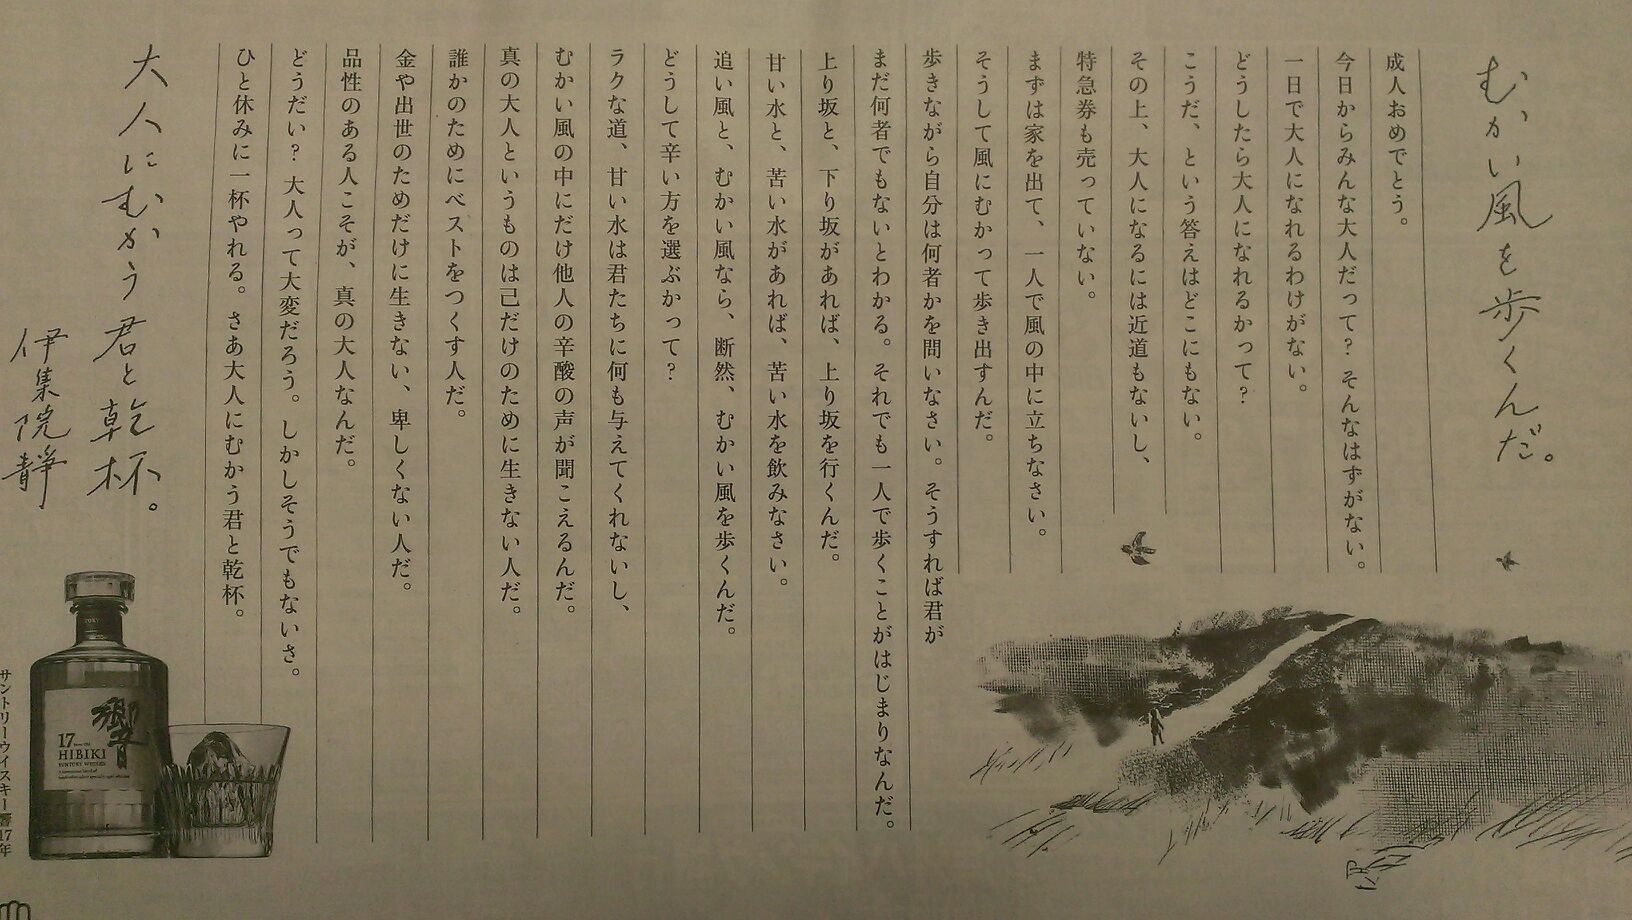 むかい風を歩くんだ。
成人おめでとう。
今日からみんな大人だって? そんなはずがない。
一日で大人になれるわけがない。
どうしたら大人になれるかって?
こうだ、という答えはどこにもない。
その上、大人になるには近道もないし、
特急券も売っていない。
まずは家を出て、一人で風の中に立ちなさい。
そうして風にむかって歩き出すんだ。
歩きながら自分は何者かを問いなさい。そうすれば君が
まだ何者でもないとわかる。それでも一人で歩くことがはじまりなんだ。
上り坂と、下り坂があれば、上り坂を行くんだ。
甘い水と、苦い水があれば、苦い水を飲みなさい。
追い風と、むかい風なら、断然、むかい風を歩くんだ。
どうして辛い方を選ぶかって?
ラクな道、甘い水は君たちに何も与えてくれないし、
むかい風の中にだけ他人の辛酸の声が聞こえるんだ。
真の大人というものは己だけのために生きない人だ。
誰かのためにベストをつくす人だ。
金や出世のためだけに生きない、卑しくない人だ。
品性のある人こそが、真の大人なんだ。
どうだい? 大人って大変だろう。しかしそうでもないさ。
ひと休みに一杯やれる。さあ大人にむかう君と乾杯。
大人にむかう君と乾杯。
伊集院静
響
17
HIBIKI
SUNTORY WHISKY
サントリーウイスキー響17年